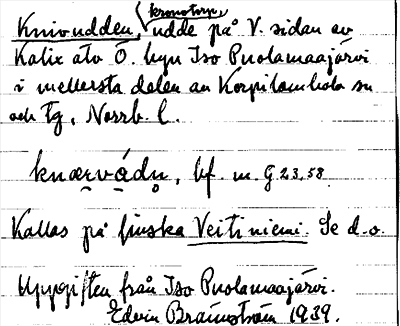 kronotorp,
Knivudden, udde på V. sidan av
Kalix älv Ö. byn Iso Puolamaajärvi
i mellersta delen av Korpilombolo sn
och tg, Norrb. l.
knærvádn, bf. m. G 23,58
Kallas på finska Veitiniemi. Se d.o.
Uppgiften från Iso Puolamaajärvi.
Edvin Brännström 1939.